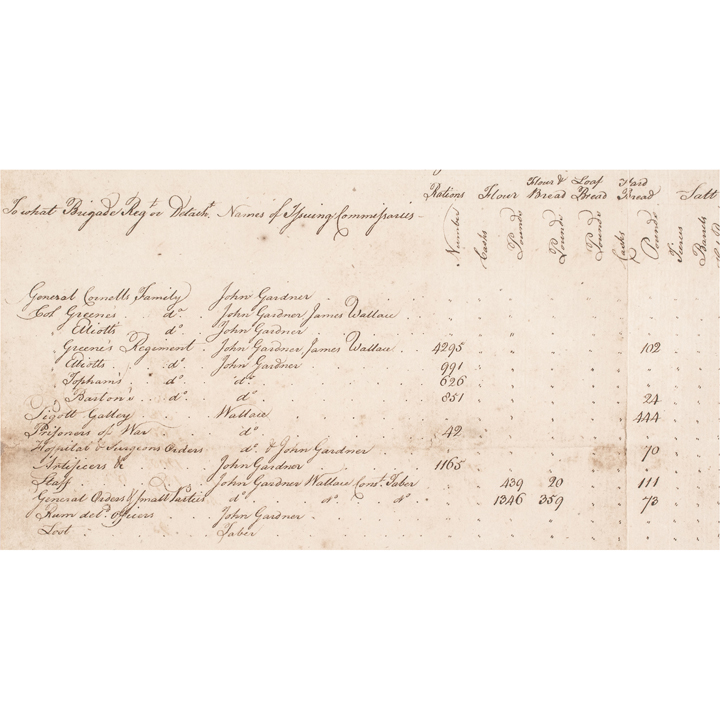 Rations Flour Flour & Bread Loaf Bread Hard Bread Salt
To what Brigade Regt. or Detacht. Names of Issuing Commissaries
Number Casks Pounds Pounds Pounds Casks Pounds Tierces Barrels
General Cornells Family John Gardner
Col Greenes do. John Gardner James Wallace
Elliotts do. John Gardner
Greene's Regiment John Gardner James Wallace 4295 102
Elliotts do. John Gardner 991
Tophams do. do. 626
Barton's do. do. 851 24
Pigott Galley Wallace 444
Prisoners of War do. 42
Hospital & Surgeons Orders do. & John Gardner 70
Artificers &c John Gardner 1165
Staff John Gardner Wallace Const. Taber 439 20 111
General Orders & Small Parties do. do. do. 1346 359 73
Rum deld. officers John Gardner
Lost Taber